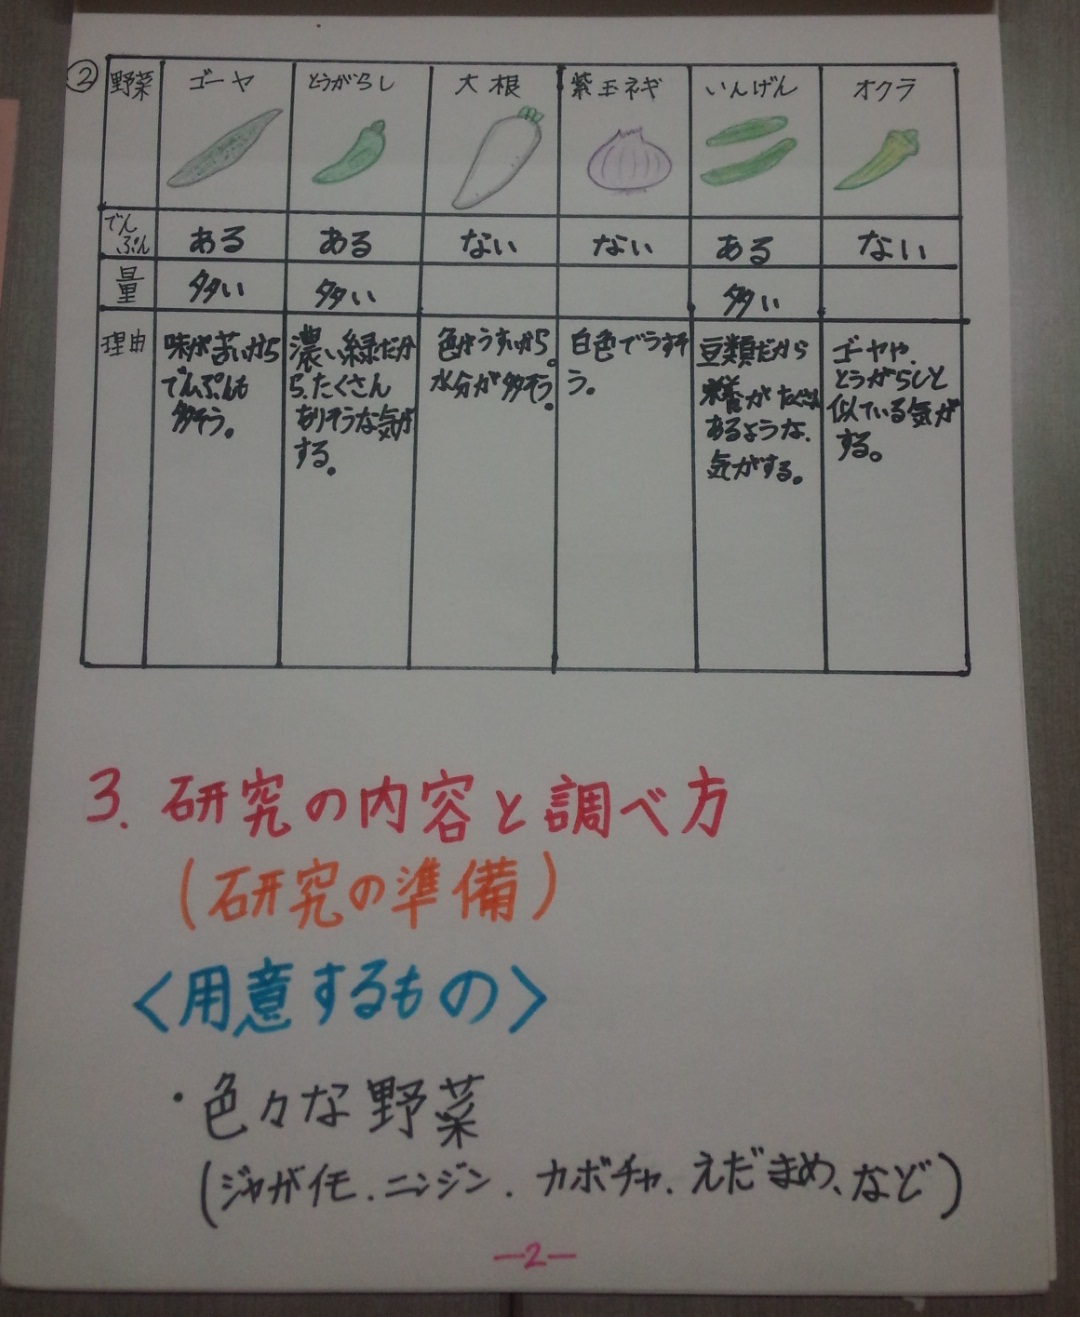 ②
野菜 ゴーヤ とうがらし 大根 紫玉ネギ いんげん オクラ
でんぷん ある ある ない ない ある ない
量 多い 多い 多い
理由
味が苦いから
でんぷんも
多そう。
濃い緑だか
ら、たくさん
ありそうな気が
する。
色がうすいから。
水分が多そう。
白色でうすそ
う。
豆類だから
栄養がたくさん
あるような、
気がする。
ゴーヤや、
とうがらしと
似ている気が
する。
3. 研究の内容と調べ方
(研究の準備)
<用意するもの>
・色々な野菜
(ジャガイモ、ニンジン、カボチャ、えだまめ、など)
—2—